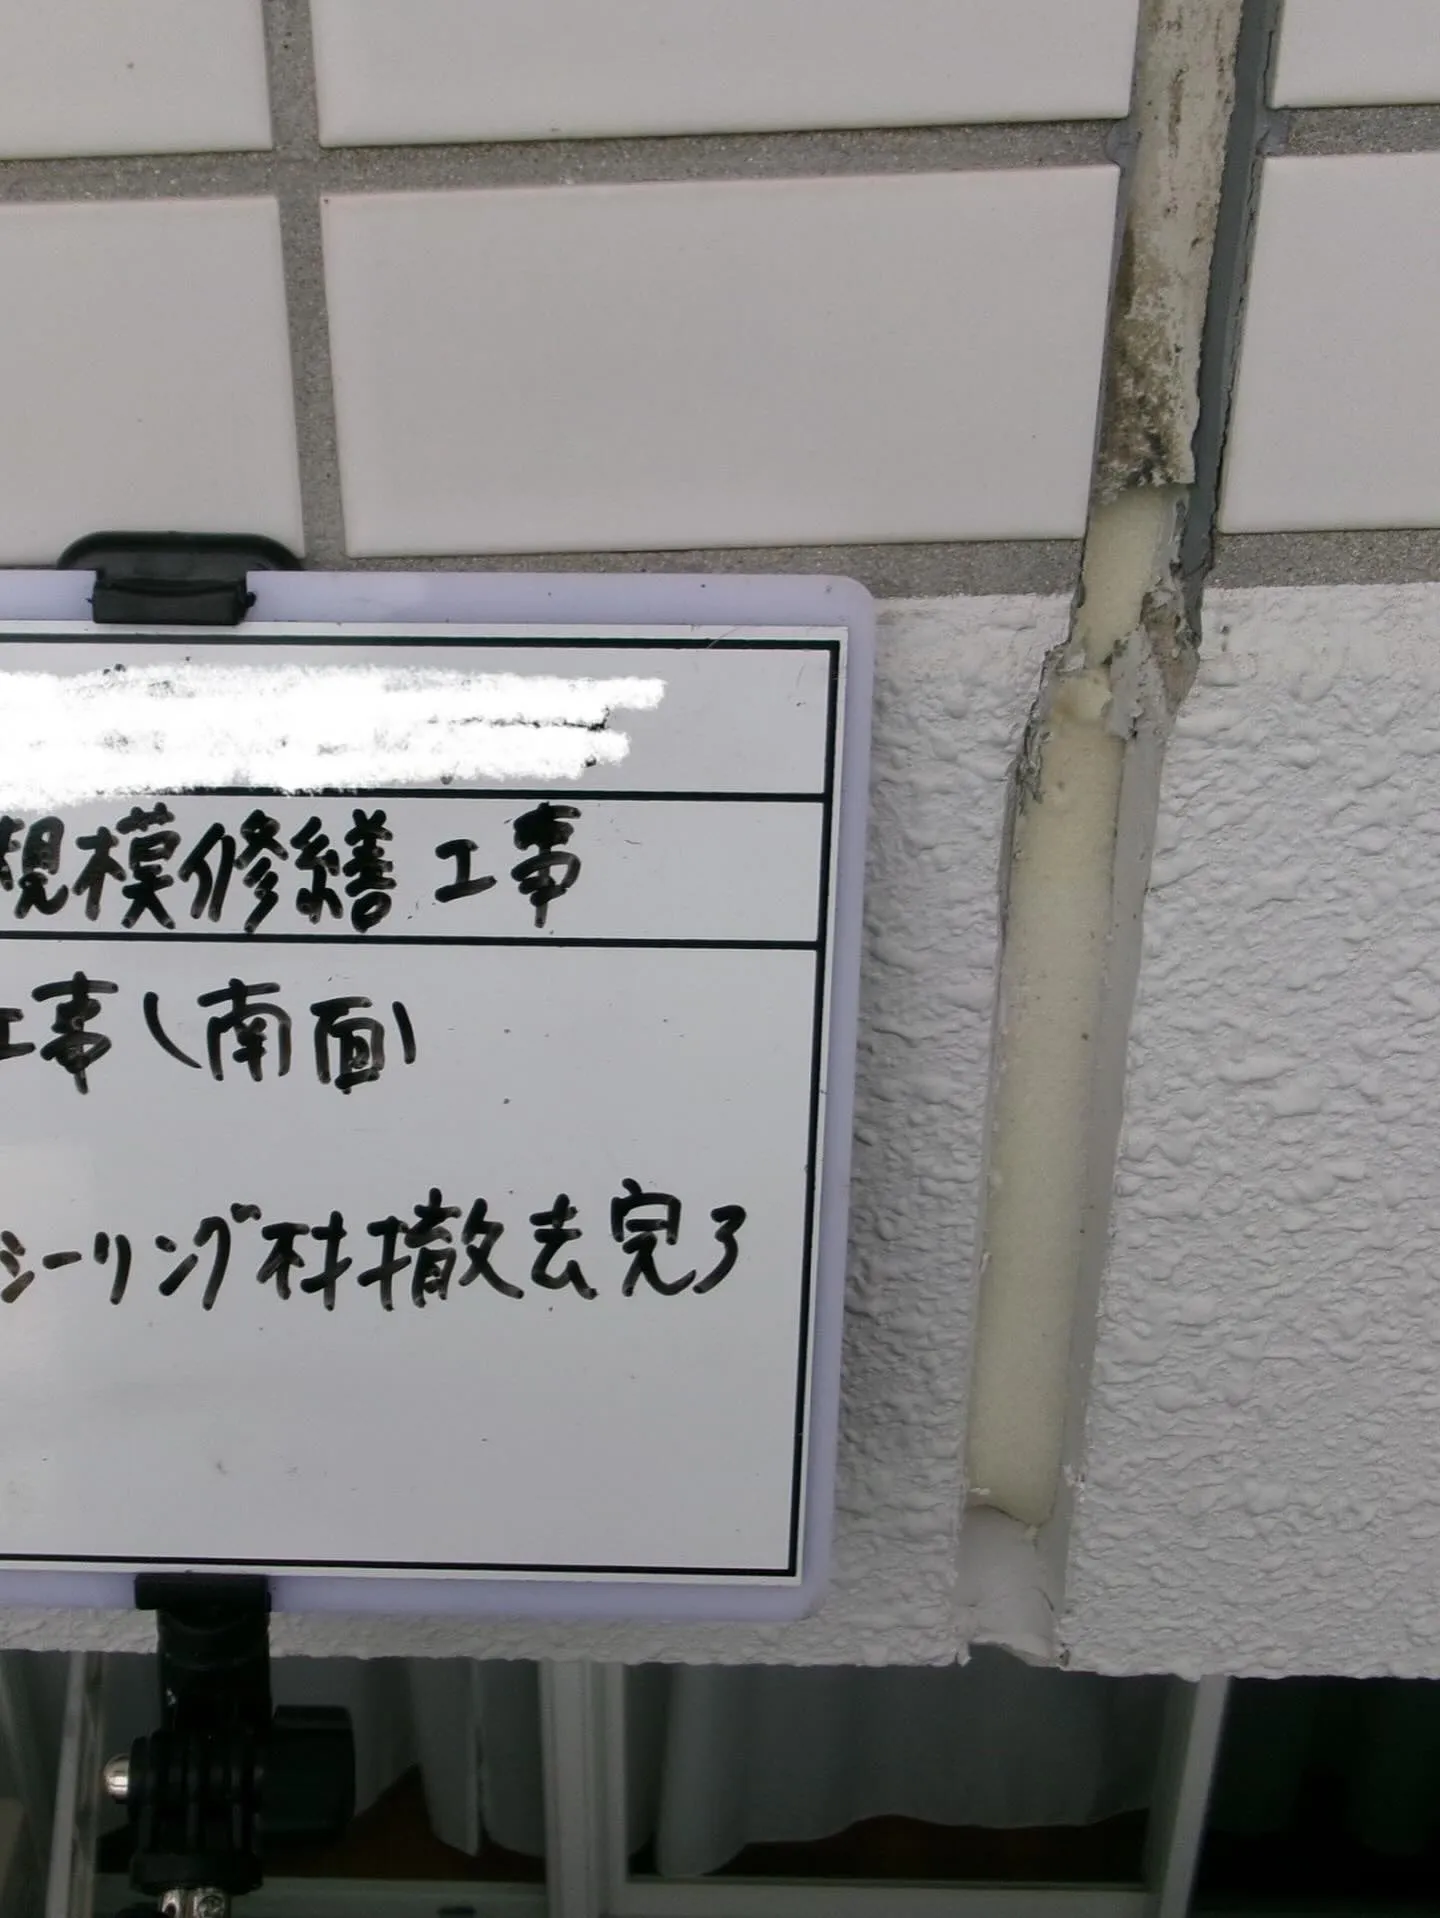 規模修繕工事
工事(南面)
シーリング材撤去完了